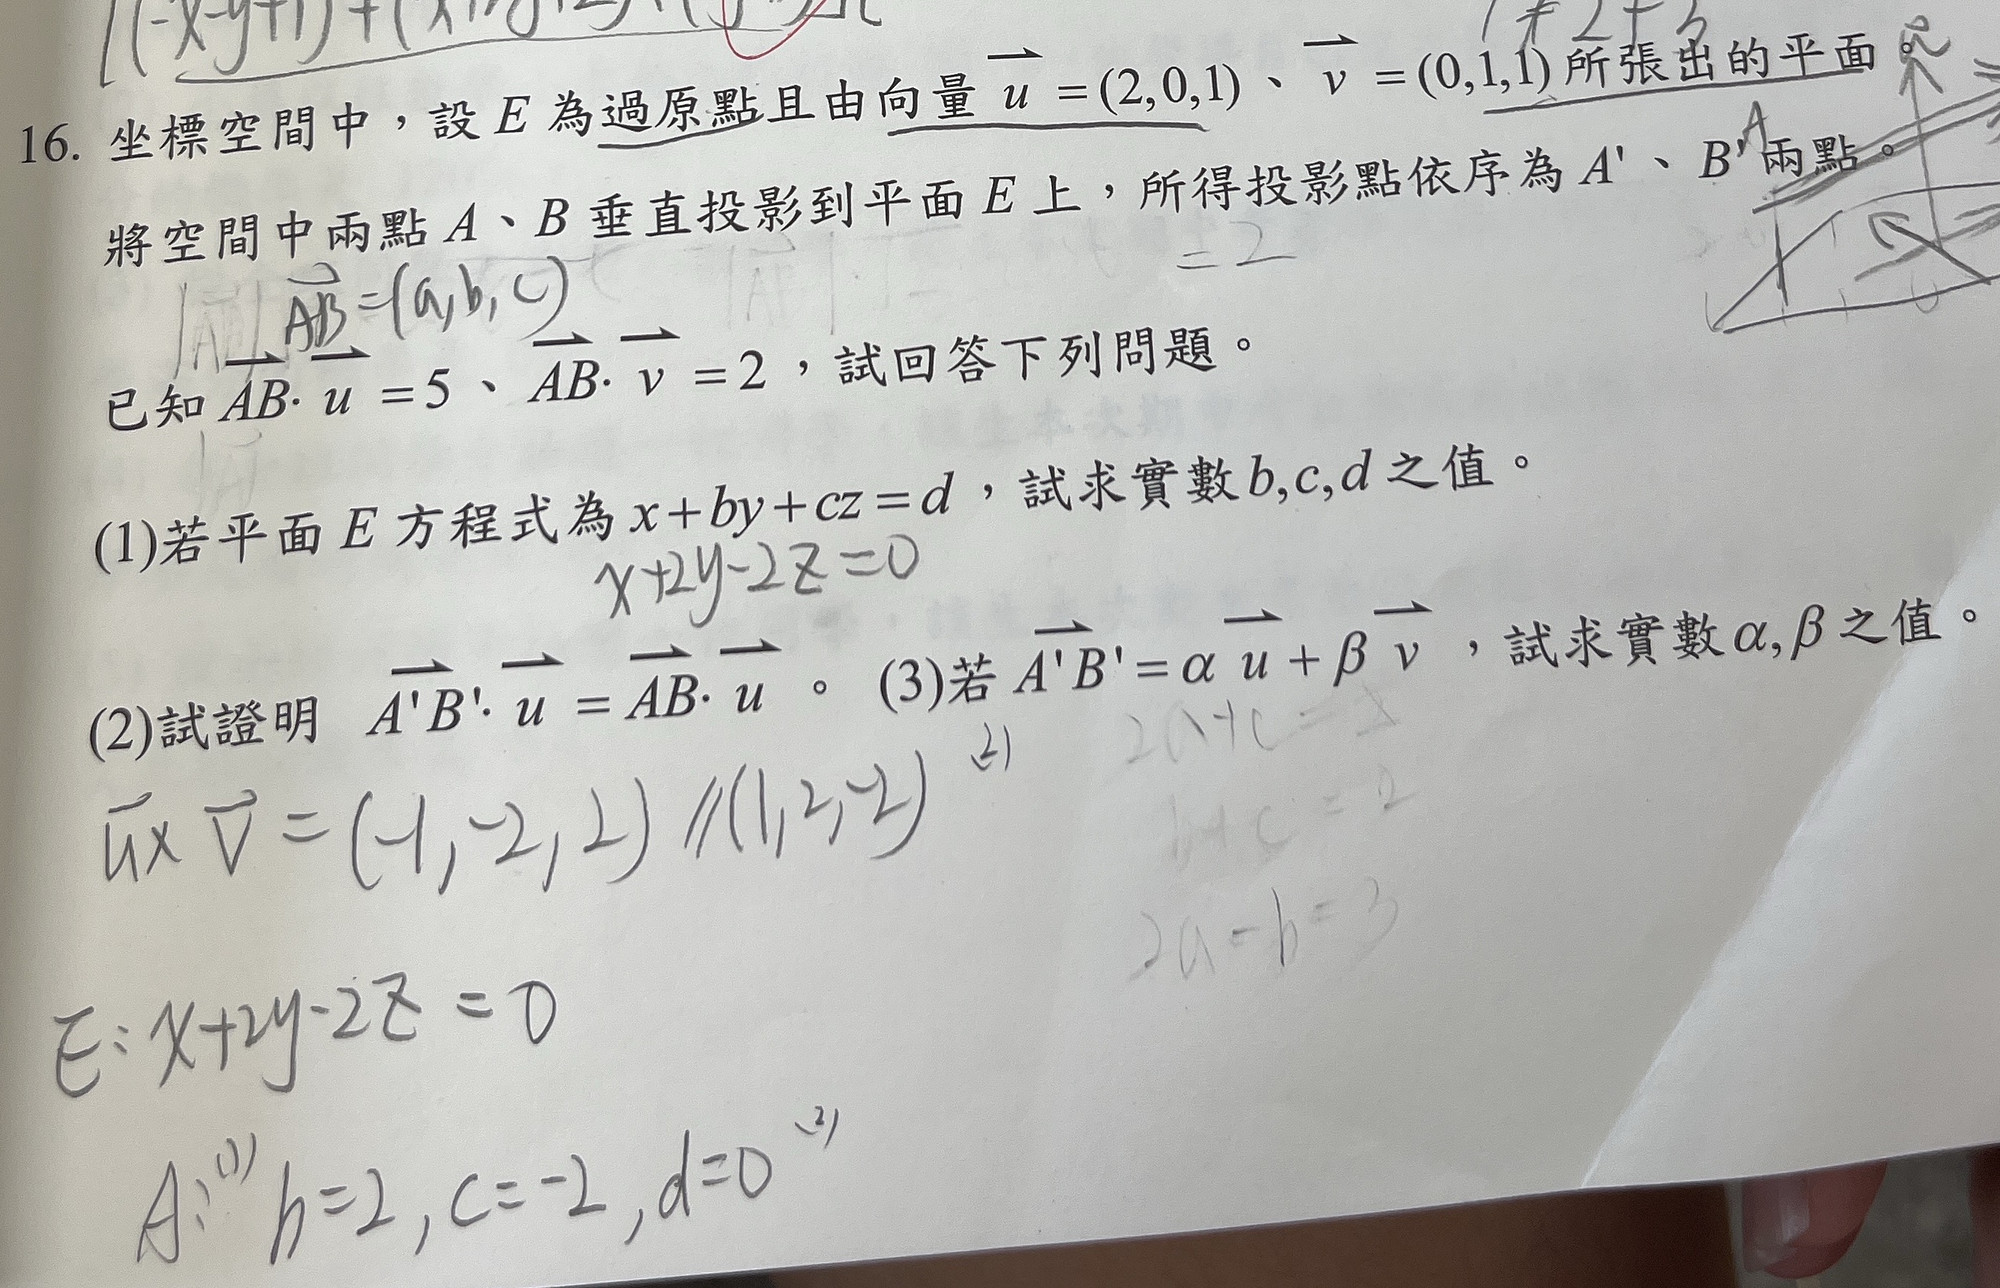 [(-x-y+1)+(
1≠2+3
16. 坐標空間中，設 E 為過原點且由向量 u =(2,0,1)、 v =(0,1,1) 所張出的平面。
A
將空間中兩點 A、B 垂直投影到平面 E 上，所得投影點依序為 A'、B' 兩點。
=2
AB=(a,b,c)
已知 AB· u =5、 AB· v =2，試回答下列問題。
(1)若平面 E 方程式為 x+by+cz=d，試求實數 b,c,d 之值。
x+2y-2z=0
(2)試證明 A'B'· u = AB· u 。 (3)若 A'B'=α u +β v ，試求實數 α,β 之值。
u×v=(-1,-2,2)//(1,2,-2) (2)
b+c=2
2a-b=3
E:x+2y-2z=0
A:(1) b=2,c=-2,d=0 (2)